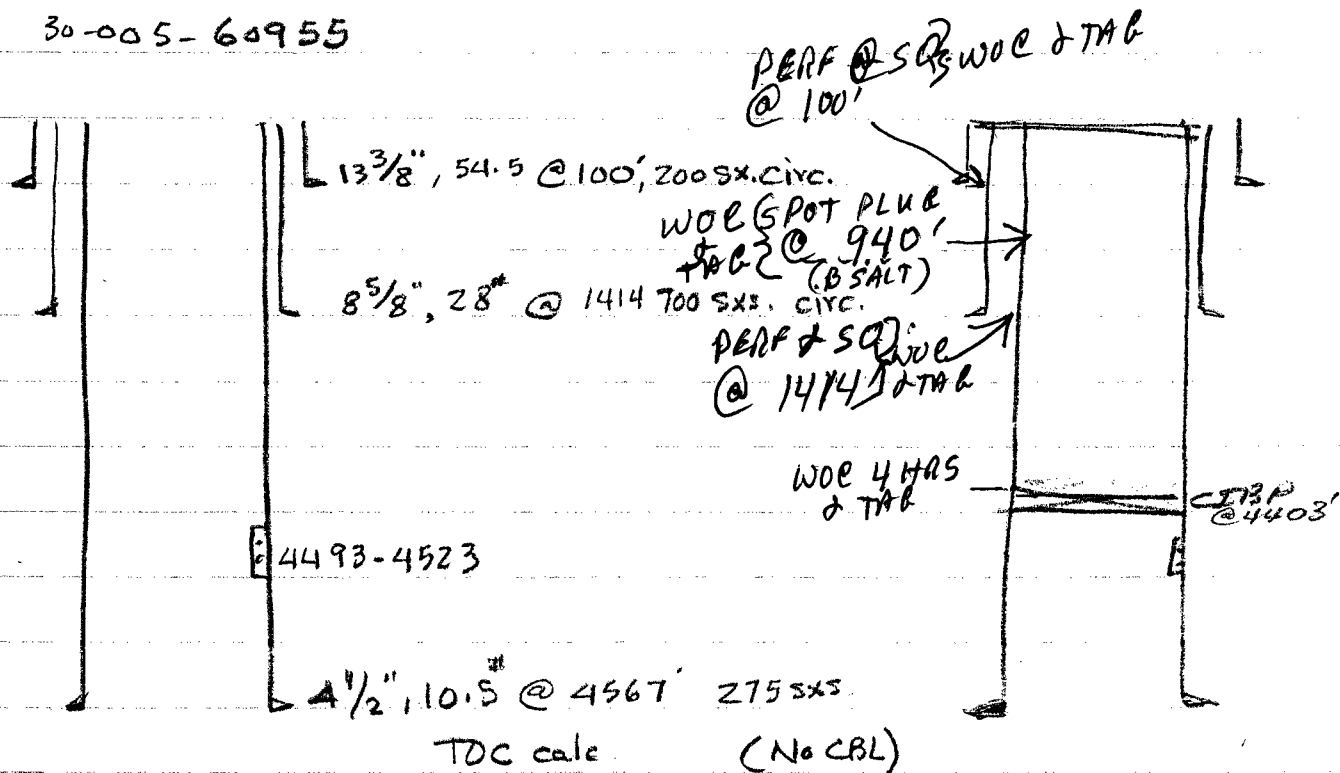 30-005-60955
PERF @ SQ, WOC & TAG
@ 100'
13 3/8", 54.5 @ 100', 200 SX. Circ.
WOC SPOT PLUG
& TAG @ 940'
(B SALT)
8 5/8", 28# @ 1414 700 SXS. CIRC.
PERF & SQ. WOC
@ 1414' & TAG
WOC 4 HRS
& TAG
CIBP
@ 4403'
4493-4523
4 1/2", 10.5# @ 4567' 275 SXS
TOC calc (No CBL)